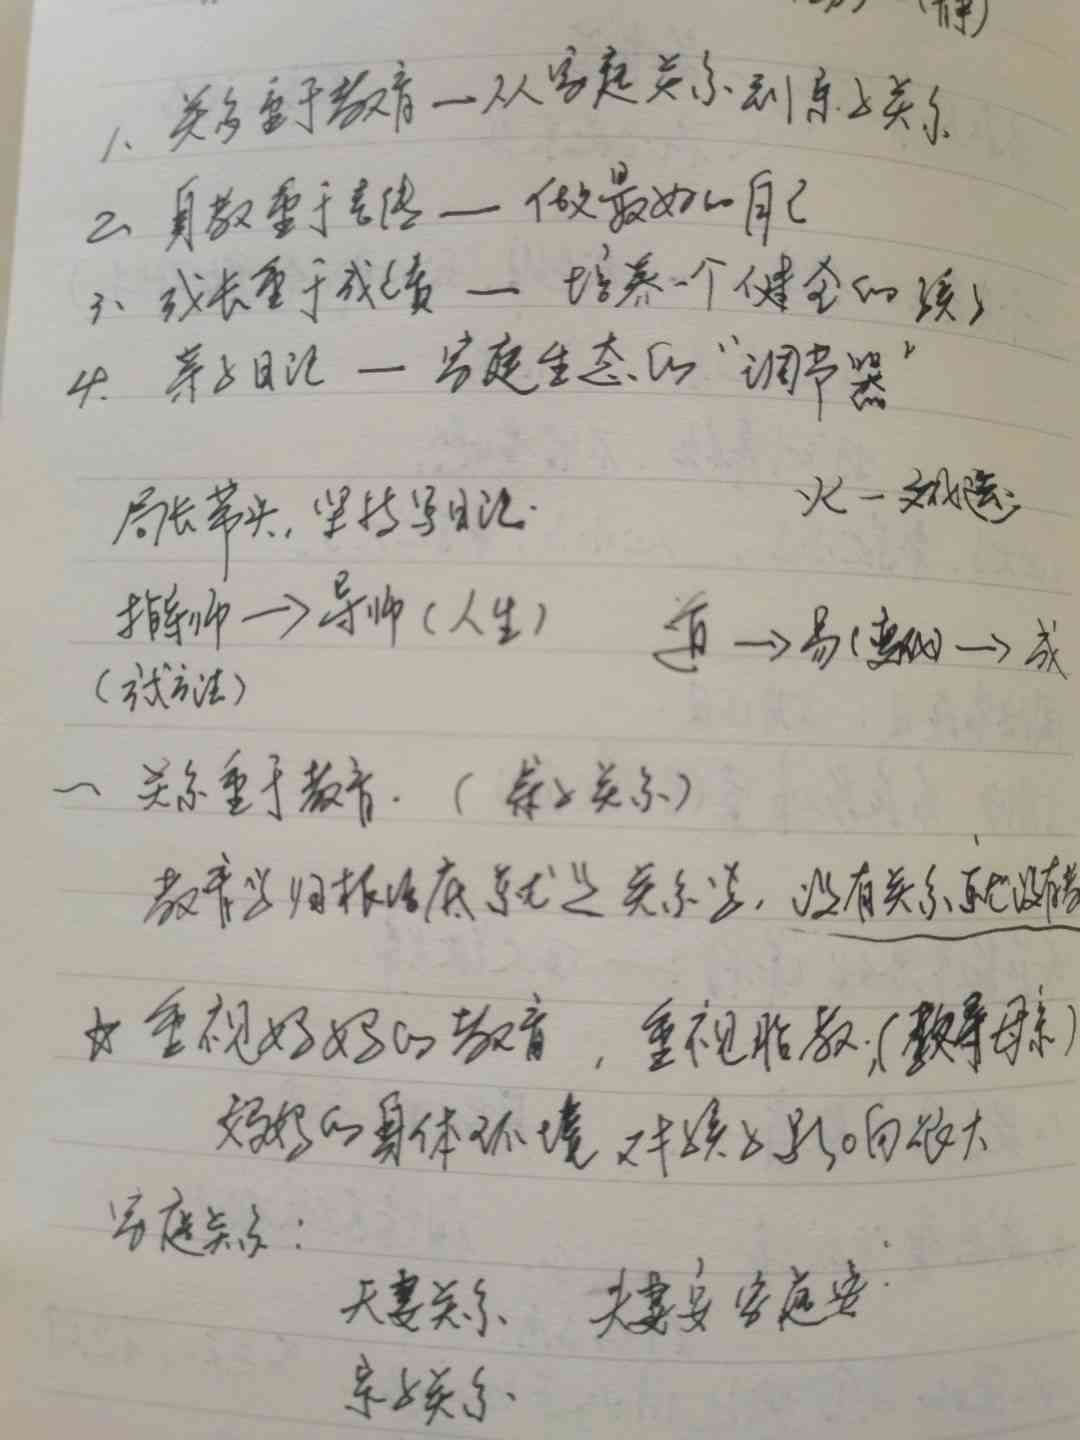 (静)
1、关系重于教育一从家庭关系到亲子关系
2、身教重于言传 — 做最好的自己
3、成长重于成绩 — 培养一个健全的孩子
4、亲子日记 — 家庭生态的“调节器”
局长带头,坚持写日记.
火一
指导师→导师(人生)
道→易(变化)→成
(方法)
一 关系重于教育.(亲子关系)
教育学归根结底就是关系学,没有关系就没有教
☆ 重视妈妈的教育,重视胎教,(教导母亲)
妈妈的身体环境对孩子影响很大
家庭关系:
夫妻关系、 夫妻安家庭安.
亲子关系、